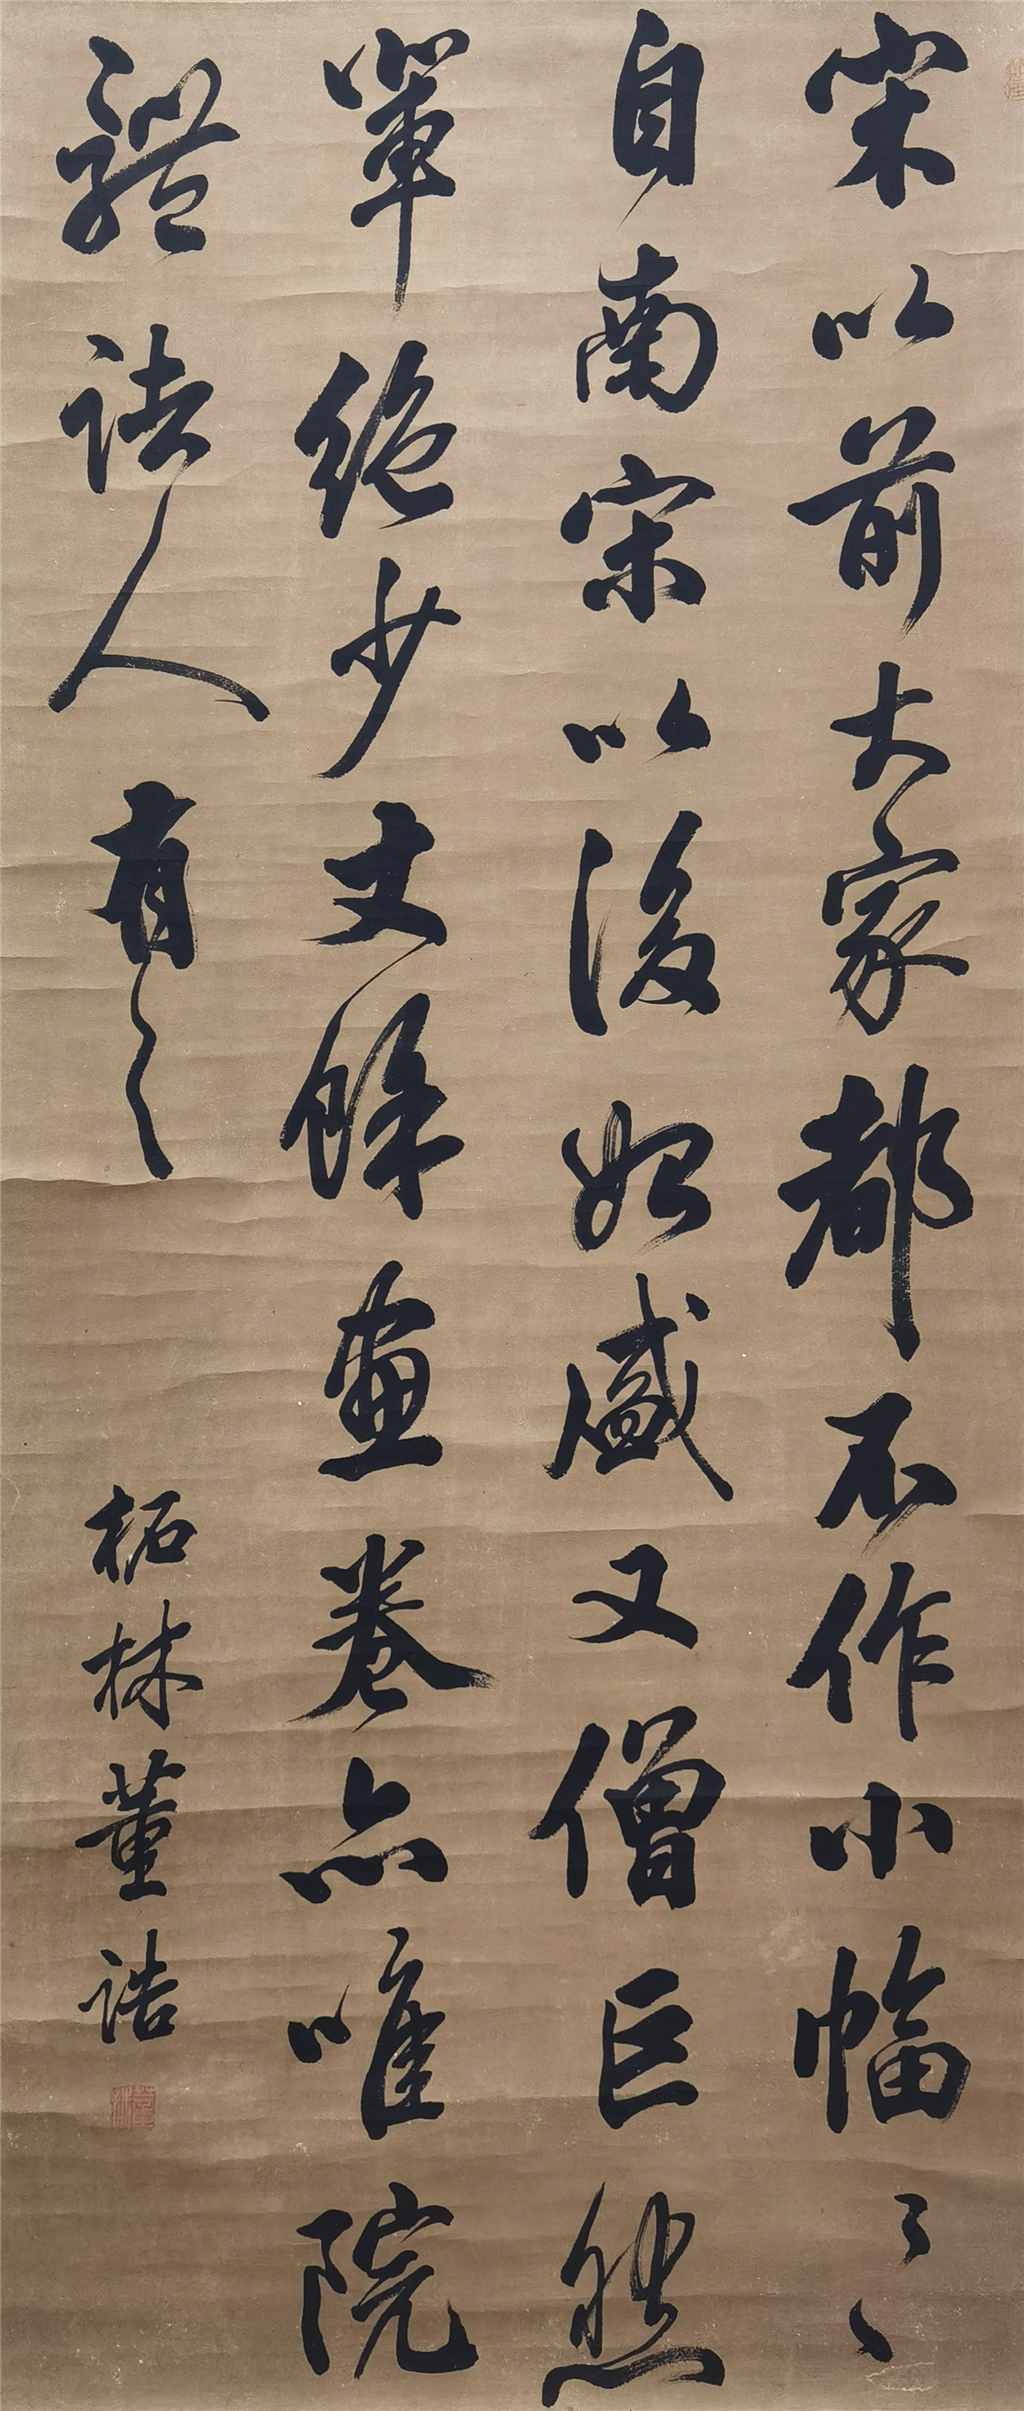 宋以前大家都不作小幅〻
自南宋以後始盛又僧巨然
單絕少丈餘畫卷亦唯院
體諸人有之
柘林董誥